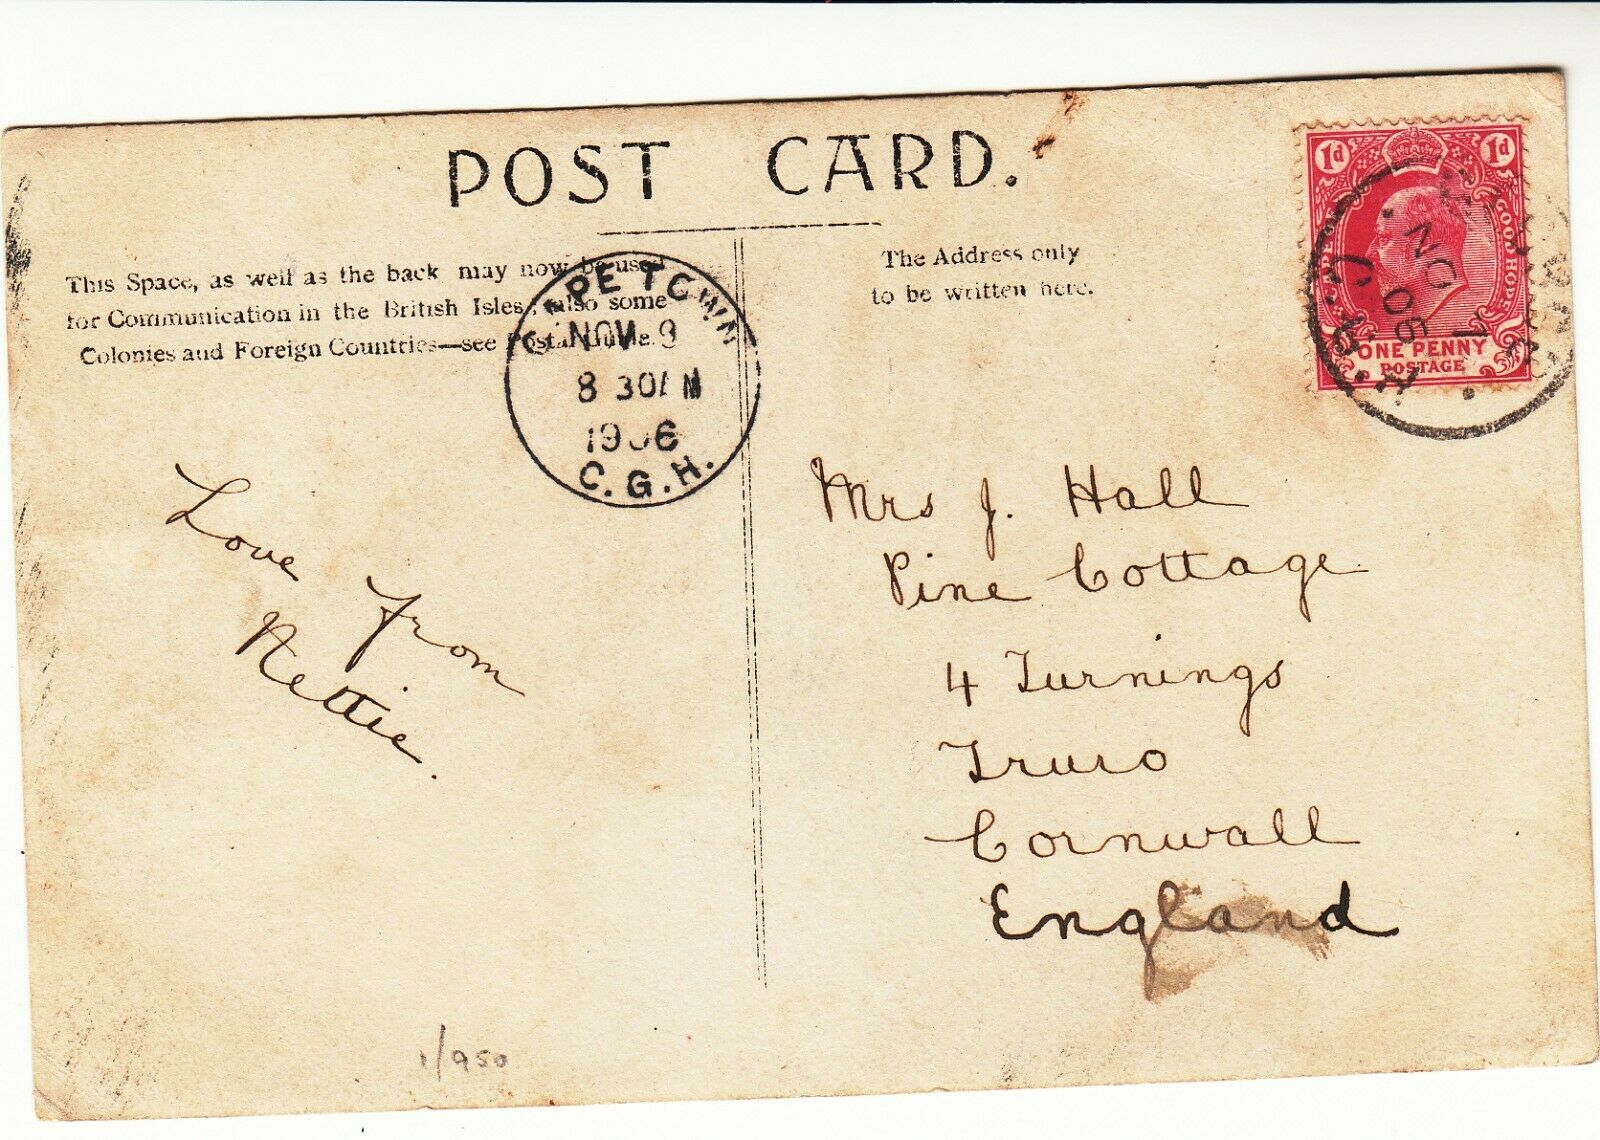 POST CARD.
This Space, as well as the back may now be used
for Communication in the British Isles, also some
Colonies and Foreign Countries—see Postal Guide.
The Address only
to be written here.
CAPE TOWN
NOV 9
8 30AM
1906
C.G.H.
1d 1d
GOOD HOPE
ONE PENNY
POSTAGE
NO
06
Love from
Nettie.
Mrs J. Hall
Pine Cottage
4 Turnings
Truro
Cornwall
England
1/950